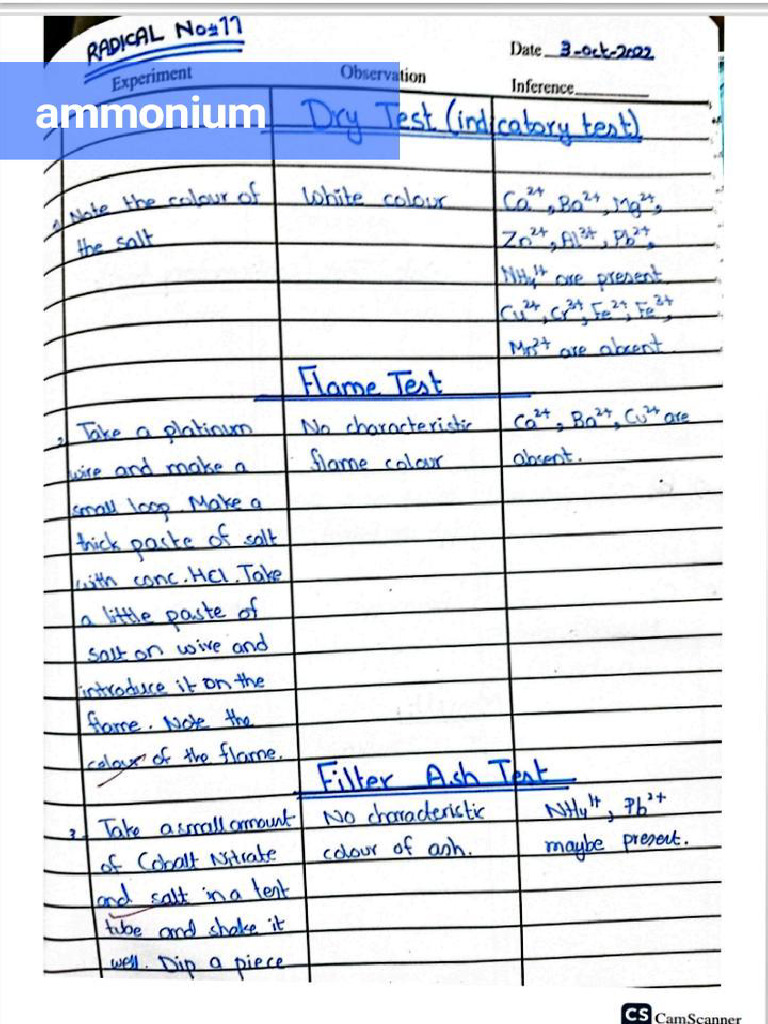 RADICAL No:11
Date 3-oct-2022
Experiment Observation Inference
ammonium
Dry Test (indicatory test)
1. Note the colour of
the salt
White colour
Ca²⁺, Ba²⁺, Mg²⁺,
Zn²⁺, Al³⁺, Pb²⁺,
NH₄¹⁺ are present
Cu²⁺, Cr³⁺, Fe²⁺, Fe³⁺
Mn²⁺ are absent
Flame Test
2. Take a platinum
wire and make a
small loop. Make a
thick paste of salt
with conc. HCl. Take
a little paste of
salt on wire and
introduce it on the
flame. Note the
colour of the flame.
No characteristic
flame colour
Ca²⁺, Ba²⁺, Cu²⁺ are
absent.
Filter Ash Test
3. Take a small amount
of Cobalt Nitrate
and salt in a test
tube and shake it
well. Dip a piece
No characteristic
colour of ash.
NH₄¹⁺, Pb²⁺
maybe present.
CS CamScanner